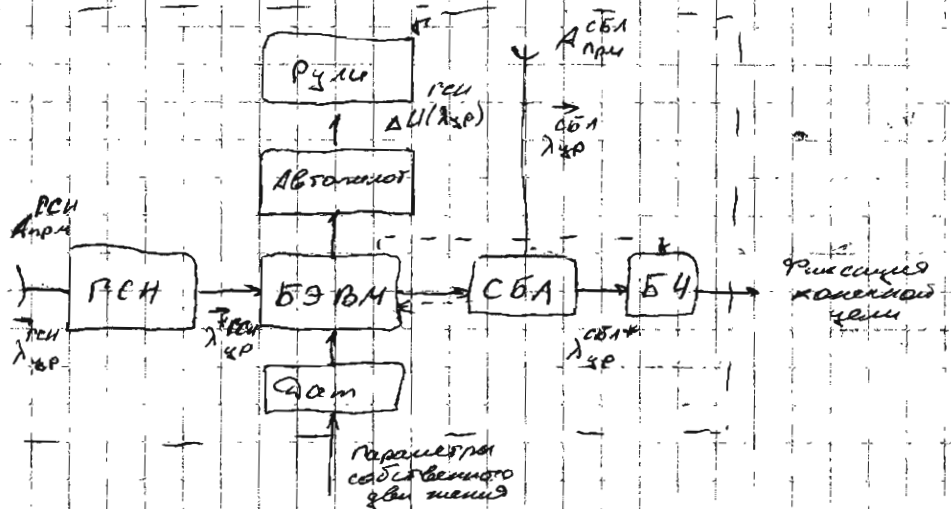 Рули
ГСН
ΔU(λцр)
А СБЛ
прм
→ СБЛ
λцр
Автопилот
ГСН
Апрм
ГСН
БЭВМ
СБЛ
БЧ
Фиксация
конечной
цели
→ ГСН
λцр
→* ГСН
λцр
СБЛ*
λцр
Дат
Параметры
собственного
движения